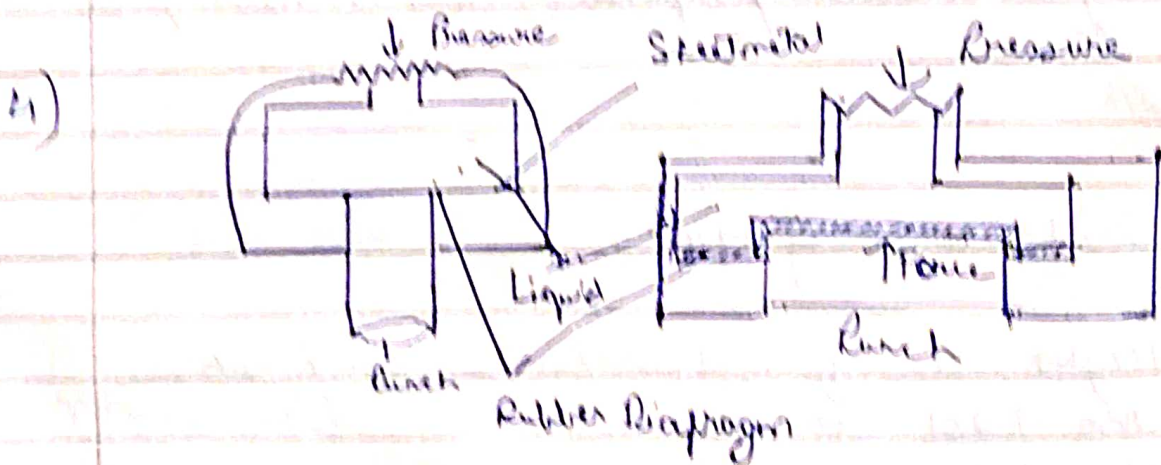 4)
Pressure
Sheetmetal
Pressure
Liquid
Force
Punch
Punch
Rubber Diafragm